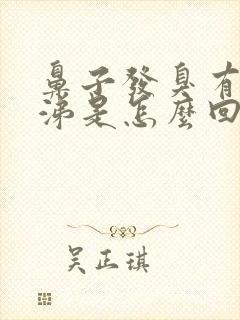 鼻子發臭有
涕是怎麼回
吴正琪